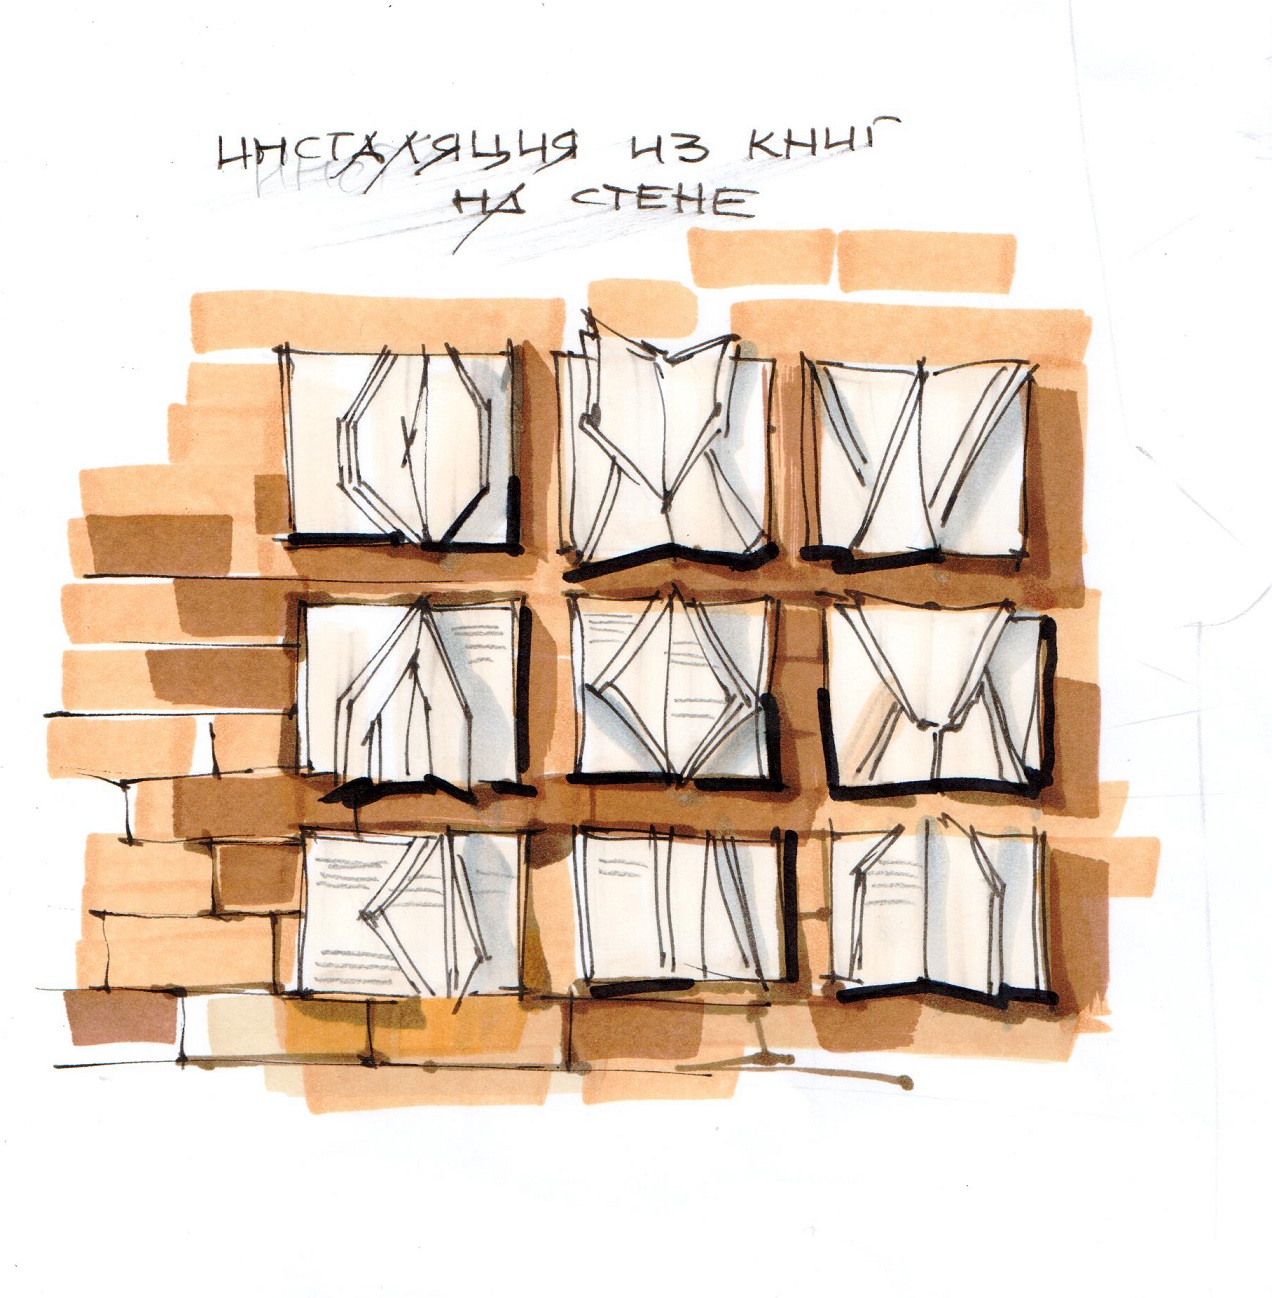 ИНСТАЛЯЦИЯ ИЗ КНИГ
НА СТЕНЕ